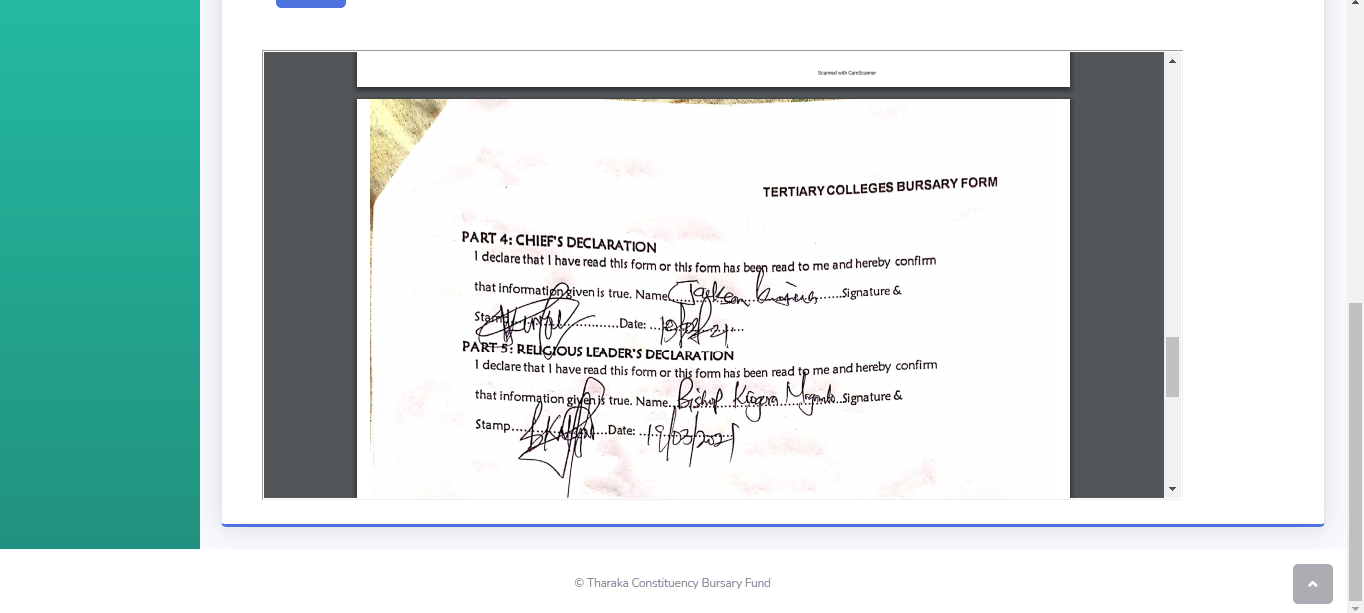 Scanned with CamScanner
TERTIARY COLLEGES BURSARY FORM
PART 4: CHIEF'S DECLARATION
I declare that I have read this form or this form has been read to me and hereby confirm
that information given is true. Name..................Signature &
Stamp..................Date: ...
PART 5: RELIGIOUS LEADER'S DECLARATION
I declare that I have read this form or this form has been read to me and hereby confirm
that information given is true. Name. Bishop ..................Signature &
Stamp..................Date: ...19/03/2021
© Tharaka Constituency Bursary Fund